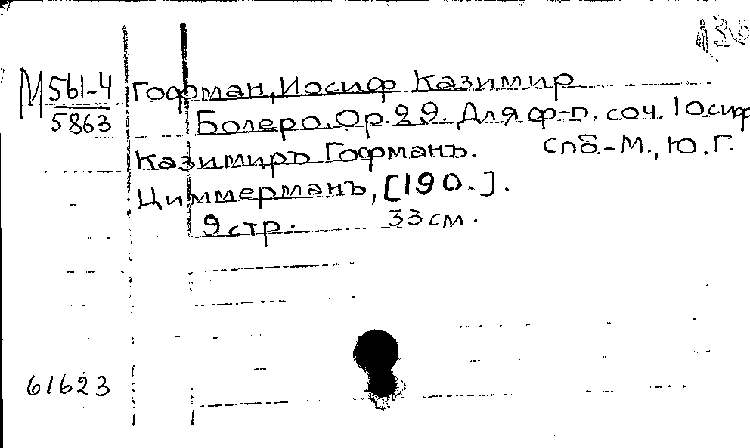 М 561-4 Гофман, Иосиф Казимир
5863 Болеро. Ор. 29. Для ф-п. соч. Іосиф
Казимиръ Гофманъ. Спб.-М., Ю.Г.
Циммерманъ, [190.].
9 стр. 33 см.
61623